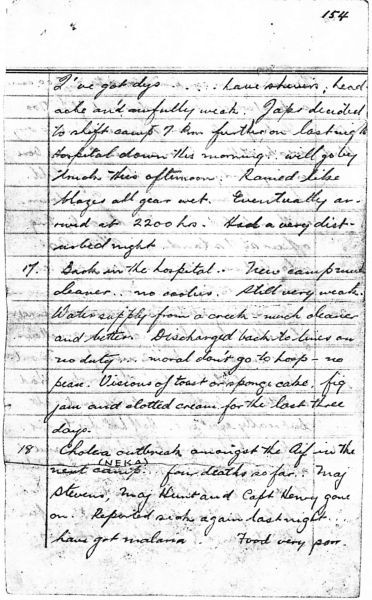 154
I've got dys . . . . have shivers, head
ache and awfully weak. Japs decided
to shift camp 7 km further on last night
Hospital down this morning. will go by
truck this afternoon. Rained like
blazes all gear wet. Eventually ar-
rived at 2200 hrs. Had a very dist-
urbed night.
17. Back in the hospital.. New camp much
cleaner... no Still very weak.
Water supply from a creek - much cleaner
and better. Discharged back to lines on
no duty... moral don't go to hosp - no
peace. Visions of toast or sponge cake, fig
jam and clotted cream for the last three
days.
18 Cholera outbreak amongst the Aif in the
next camp (NEKA) .. four deaths so far.. Maj
Stevens, Maj Hunt and Capt Henry gone
on. Reported sick again last night...
have got malaria . . Food very poor.